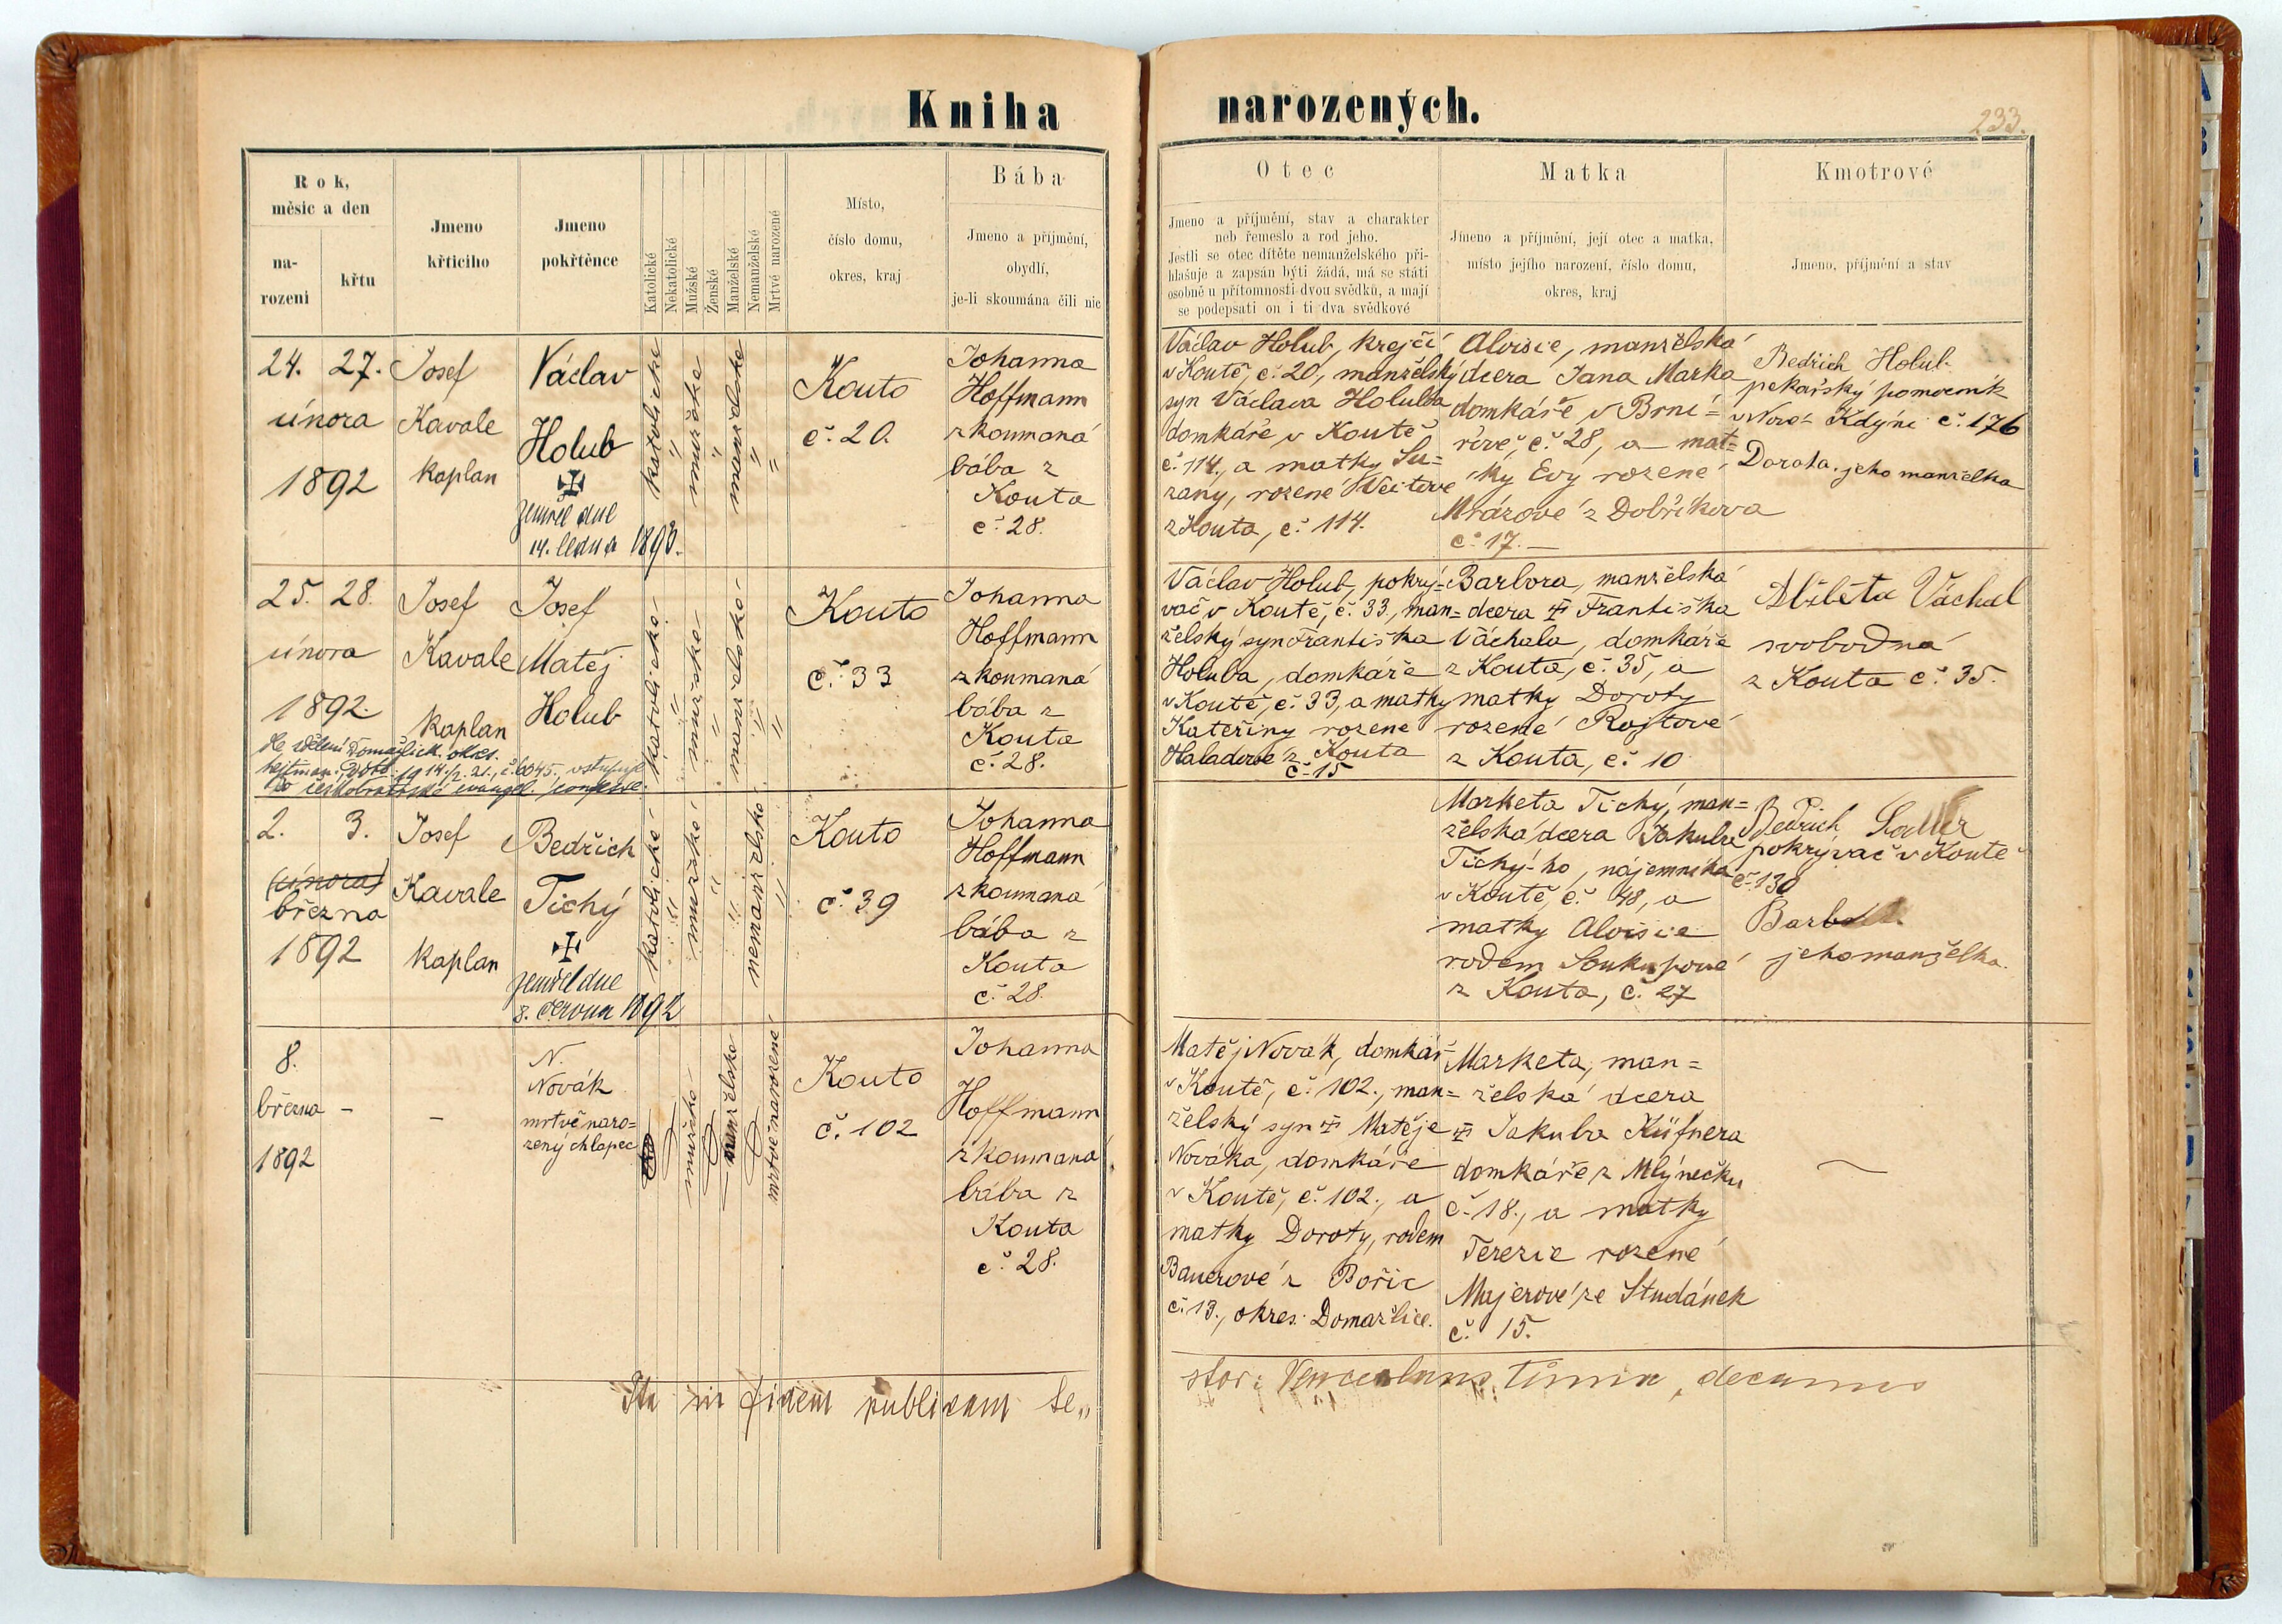 Kniha narozených.
233.
Rok,
měsíc a den
na-
rození
křtu
Jmeno
křticího
Jmeno
pokřtěnce
Katolické
Nekatolické
Mužské
Ženské
Manželské
Nemanželské
Mrtvě narozené
Místo,
číslo domu,
okres, kraj
Bába
Jmeno a příjmění,
obydlí,
je-li skoumána čili nic
Otec
Jmeno a příjmění, stav a charakter
neb řemeslo a rod jeho.
Jestli se otec dítěte nemanželského při-
hlašuje a zapsán býti žádá, má se státi
osobně u přítomnosti dvou svědků, a mají
se podepsati on i ti dva svědkové
Matka
Jmeno a příjmění, její otec a matka,
místo jejího narození, číslo domu,
okres, kraj
Kmotrové
Jmeno, příjmění a stav
24. 27.
února
1892
Josef
Kavale
kaplan
Václav
Holub
zemřel dne
14. ledna 1893.
katolické
"
mužské
"
manželské
"
"
Kouto
č. 20.
Johanna
Hoffmann
zkoumaná
bába z
Kouta
č. 28.
Václav Holub, krejčí
v Koutě, č. 20, manželský
syn Václava Holuba
domkáře v Koutě
č. 114., a matky Su=
zany, rozené
z Kouta, č. 114.
Aloisie, manželská
dcera Jana Marka
domkáře v Brní=
řově, č. 28, a mat=
ky Evy rozené
Mrázové z Dobříkova
č. 17.—
Bedřich Holub
pekařský pomocník
v Nové Kdýni č. 176
Dorota, jeho manželka
25. 28.
února
1892.
Josef
Kavale
kaplan
Josef
Matěj
Holub
Dle sdělení Domažlick. okres.
hejtman. 1914, č. 6045, vstupuje
do českobratrské evangel. konfesse.
katolické
"
mužské
"
manželské
"
"
Kouto
č. 33
Johanna
Hoffmann
zkoumaná
bába z
Kouta
č. 28.
Václav Holub, pokrý=
vač v Koutě, č. 33, man=
želský syn Františka
Holuba, domkáře
v Koutě, č. 33, a matky
Kateřiny rozené
Haladové z Kouta
č. 15
Barbora, manželská
dcera Františka
Váchala, domkáře
z Kouta, č. 35, a
matky Doroty
rozené Rojtové
z Kouta, č. 10
Váchal
svobodná
z Kouta č. 35.
2. 3.
(února)
března
1892
Josef
Kavale
kaplan
Bedřich
Tichý
zemřel dne
8. června 1892
katolické
"
mužské
"
"
nemanželské
"
Kouto
č. 39
Johanna
Hoffmann
zkoumaná
bába z
Kouta
č. 28.
Marketa Tichý, man=
želská dcera Jakuba
Tichý-ho, nájemníka
v Koutě, č. 48, a
matky Aloisie
rodem Soukupové
z Kouta, č. 27
Bedrich
pokrývač v Koutě
č. 130
jeho manželka.
8.
března
1892
-
-
N.
Novák
mrtvě naro=
zený chlapec
mužské
manželské
mrtvě narozené
Kouto
č. 102
Johanna
Hoffmann
zkoumaná
bába z
Kouta
č. 28.
Matěj Novák, domkář
v Koutě, č. 102., man=
želský syn Matěje
Nováka, domkáře
v Koutě, č. 102., a
matky Doroty, rodem
Bauerové z Pořic
č. 13., okres. Domažlice.
Marketa, man=
želská dcera
Jakuba Küfnera
domkáře z Mlýnečku
č. 18., a matky
Terezie rozené
Majerové, ze Studánek
č. 15.
Ita in fidem publicam te„
stor: Venceslaus Tůma, decanus